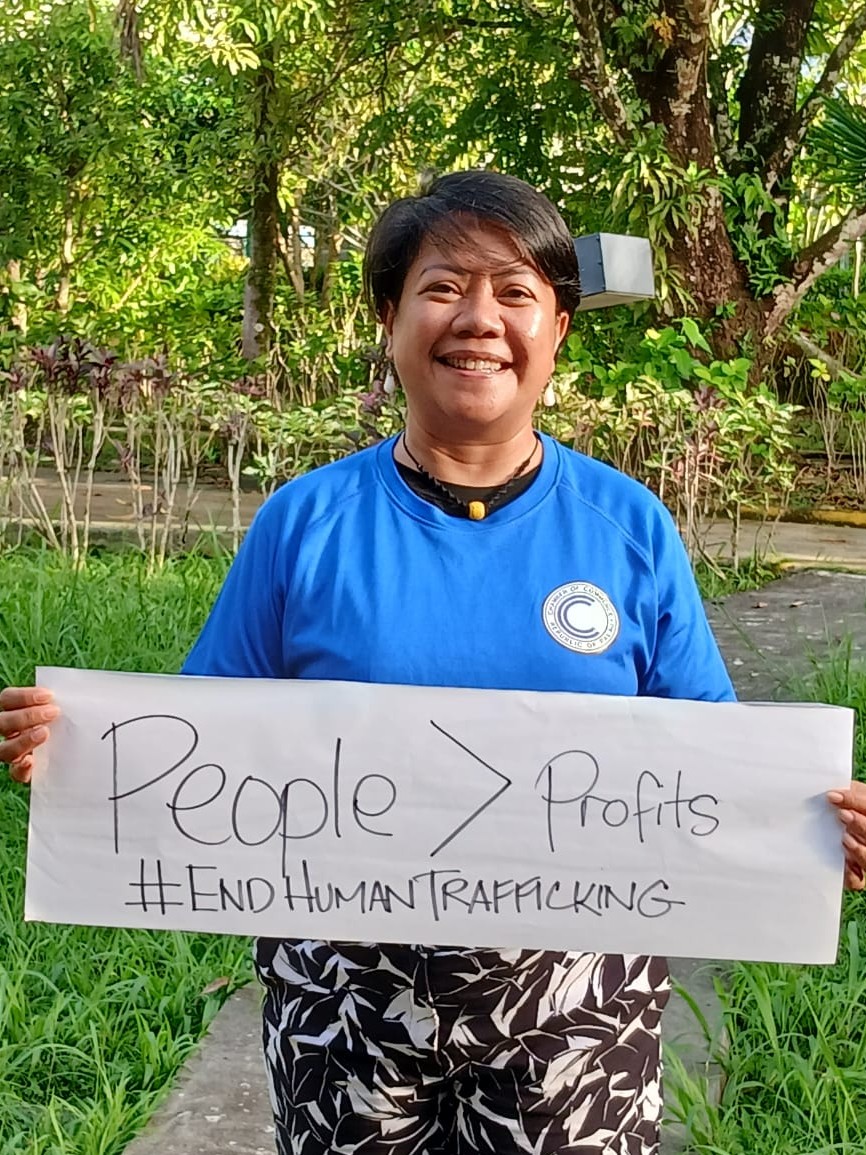 CHAMBER OF COMMERCE
REPUBLIC OF PALAU
People > Profits
#ENDHUMANTRAFFICKING